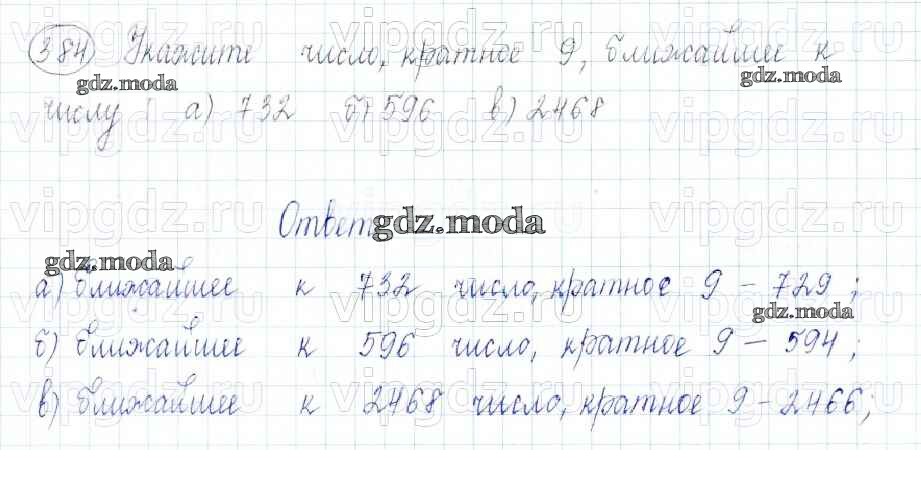 384 Укажите число, кратное 9, ближайшее к
gdz.moda gdz.moda
числу а) 732 б) 596 в) 2468
vipgdz.ru vipgdz.ru vipgdz.ru
Ответ
gdz.moda
gdz.moda
а) ближайшее к 732 число, кратное 9 – 729;
gdz.moda
б) ближайшее к 596 число, кратное 9 – 594;
в) ближайшее к 2468 число, кратное 9 – 2466;